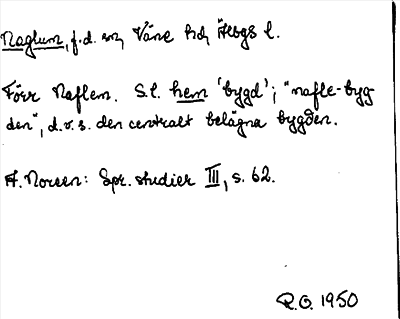 Naglum, f.d. sn, Väne hd, Älvsgs l.
Förr Naflem. S.l. hem 'bygd'; "nafle-byg-
den", d.v.s. den centralt belägna bygden.
A. Noreen: Spr. studier III, s. 62.
R.O. 1950